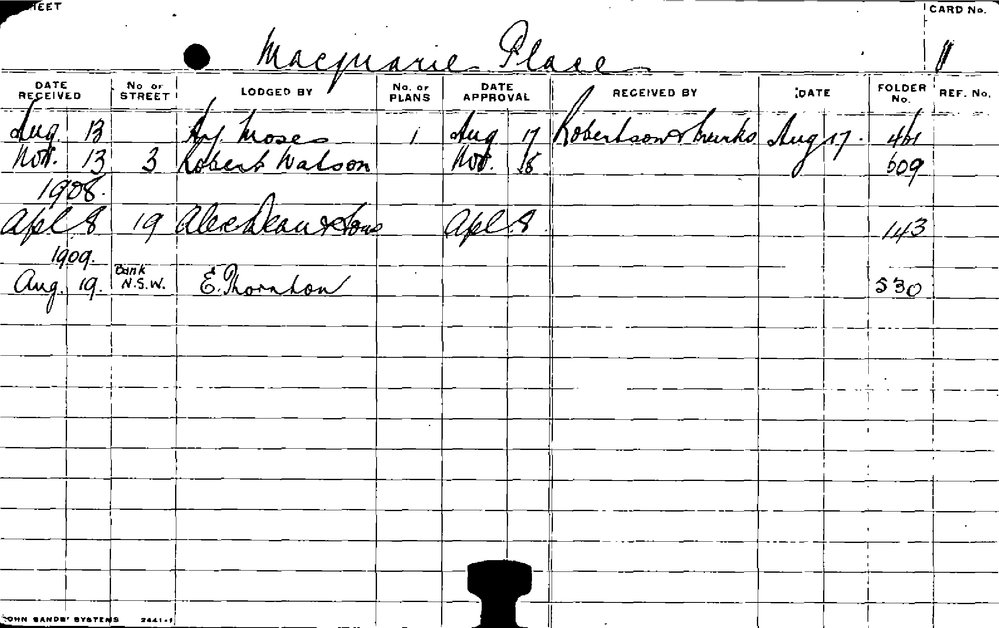 HEET
CARD No.
Macquarie Place
1
DATE RECEIVED No OF STREET LODGED BY No. OF PLANS DATE APPROVAL RECEIVED BY DATE FOLDER No. REF. No.
Aug 13 Hy Moses 1 Aug 17 Robertson & Marks Aug 17. 461
Nov. 13 3 Robert Watson Nov. 18 609
1908.
Apl 8 19 Alex Dean & Sons Apl 8 143
1909.
Aug. 19. Bank N.S.W. E. Thornton 530
JOHN SANDS' SYSTEMS 2441-1